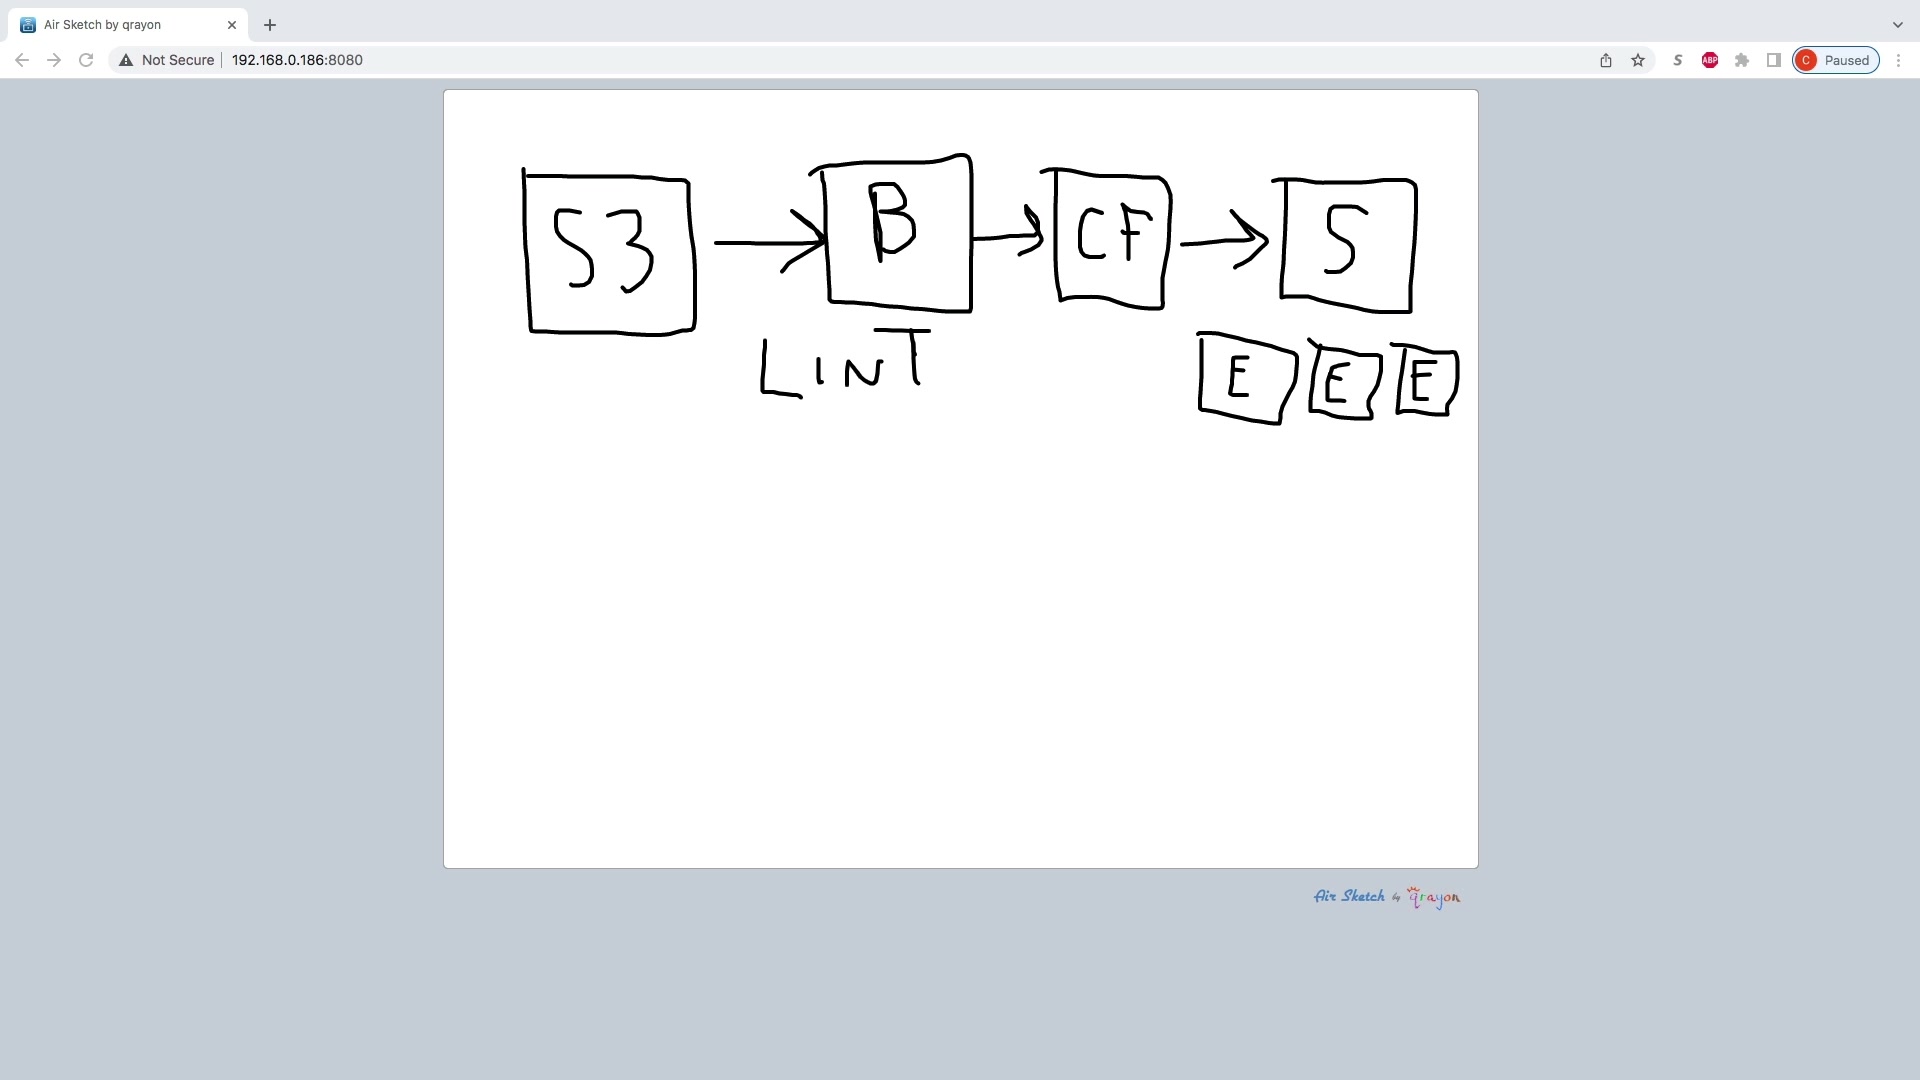 Air Sketch by qrayon
Not Secure 192.168.0.186:8080
S ABP C Paused
S3 B CF S
LINT
E E E
Air Sketch by qrayon